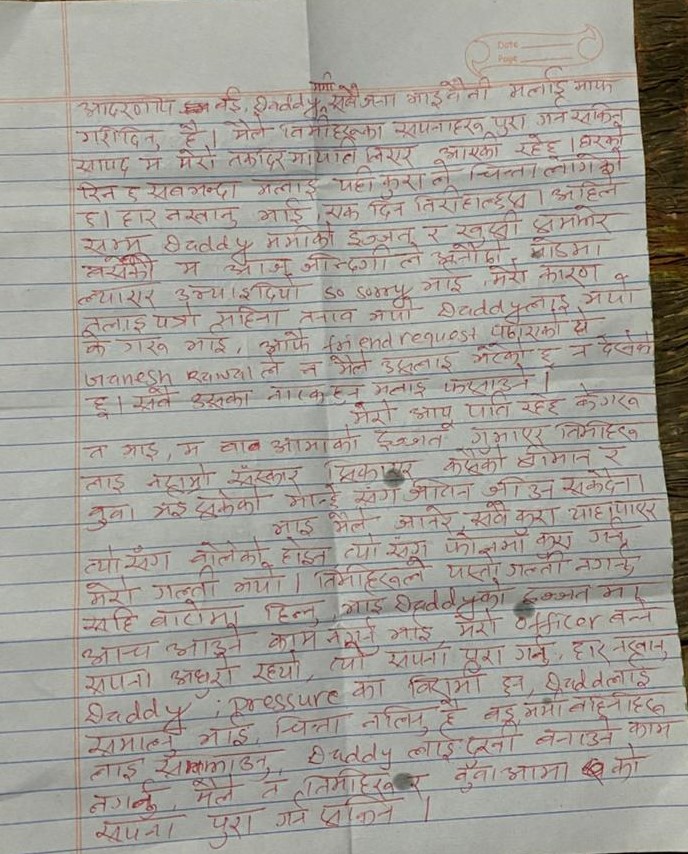 Date
Page
ममी
आदरणीय बई, Daddy, सबैजना भाइ बैनी मलाई माफ
गरीदिनु है। मैले तिमीहरूका सपनाहरू पुरा गर्न सकिन
सायद म मेरो तकदिर मा यति लिएर आएकी रहेछु।
रिन छ सबभन्दा मलाई यही कुरा ले चिन्ता लागेको
छ। हार नखानु भाई, एक दिन तिरीहाल्छस। अहिले
सम्म Daddy ममीको इज्जत र खुशी सम्झेर
बसेकी म आज जीन्दगी ले अनौठो मोडमा
ल्याएर उभ्याइदियो so sorry भाइ, मेरो कारण
तलाई पनी तनाव भयो Daddyलाई भयो
के गरू भाई, आफै friend request पठाएको हो
Ganesh ले न मैले उसलाई भेटेको छु न देखेको
छु। सबै उसका नाटक हुन मलाई फसाउने।
मेरो आयु यति रहेछ के गरू
त भाइ, म बाबा आमाको इज्जत गुमाएर तिमीहरू
लाई नराम्रो सँस्कार सिकाएर कसैको श्रीमान र
बुवा भई सकेको मान्छे संग जीवन जीउन सक्दैन।
भाइ मैले जानेर, सबै कुरा थाहा पाएर
त्यो सँग बोलेको होइन त्यो संग फोनमा कुरा गर्नु
मेरो गल्ती भयो। तिमीहरूले यस्तो गल्ती नगर्नु
सहि बाटोमा हिन्नु, भाइ Daddyको इज्जत मा
आच आउने काम नगर्नु भाई, मेरो officer बन्ने
सपना अधुरो रहयो, त्यो सपना पुरा गर्नु, हार नखानु
Daddy, pressure का बिरामी हुन, Dadलाई
समाल्नु भाई, चिन्ता नलिनु है बई ममी बहिनीहरू
लाई सम्झाउनु, Daddy लाई दुःखी बनाउने काम
नगर्नु, मैले त तिमीहरू र बुँवा आमा को
सपना पुरा गर्न सकिन।